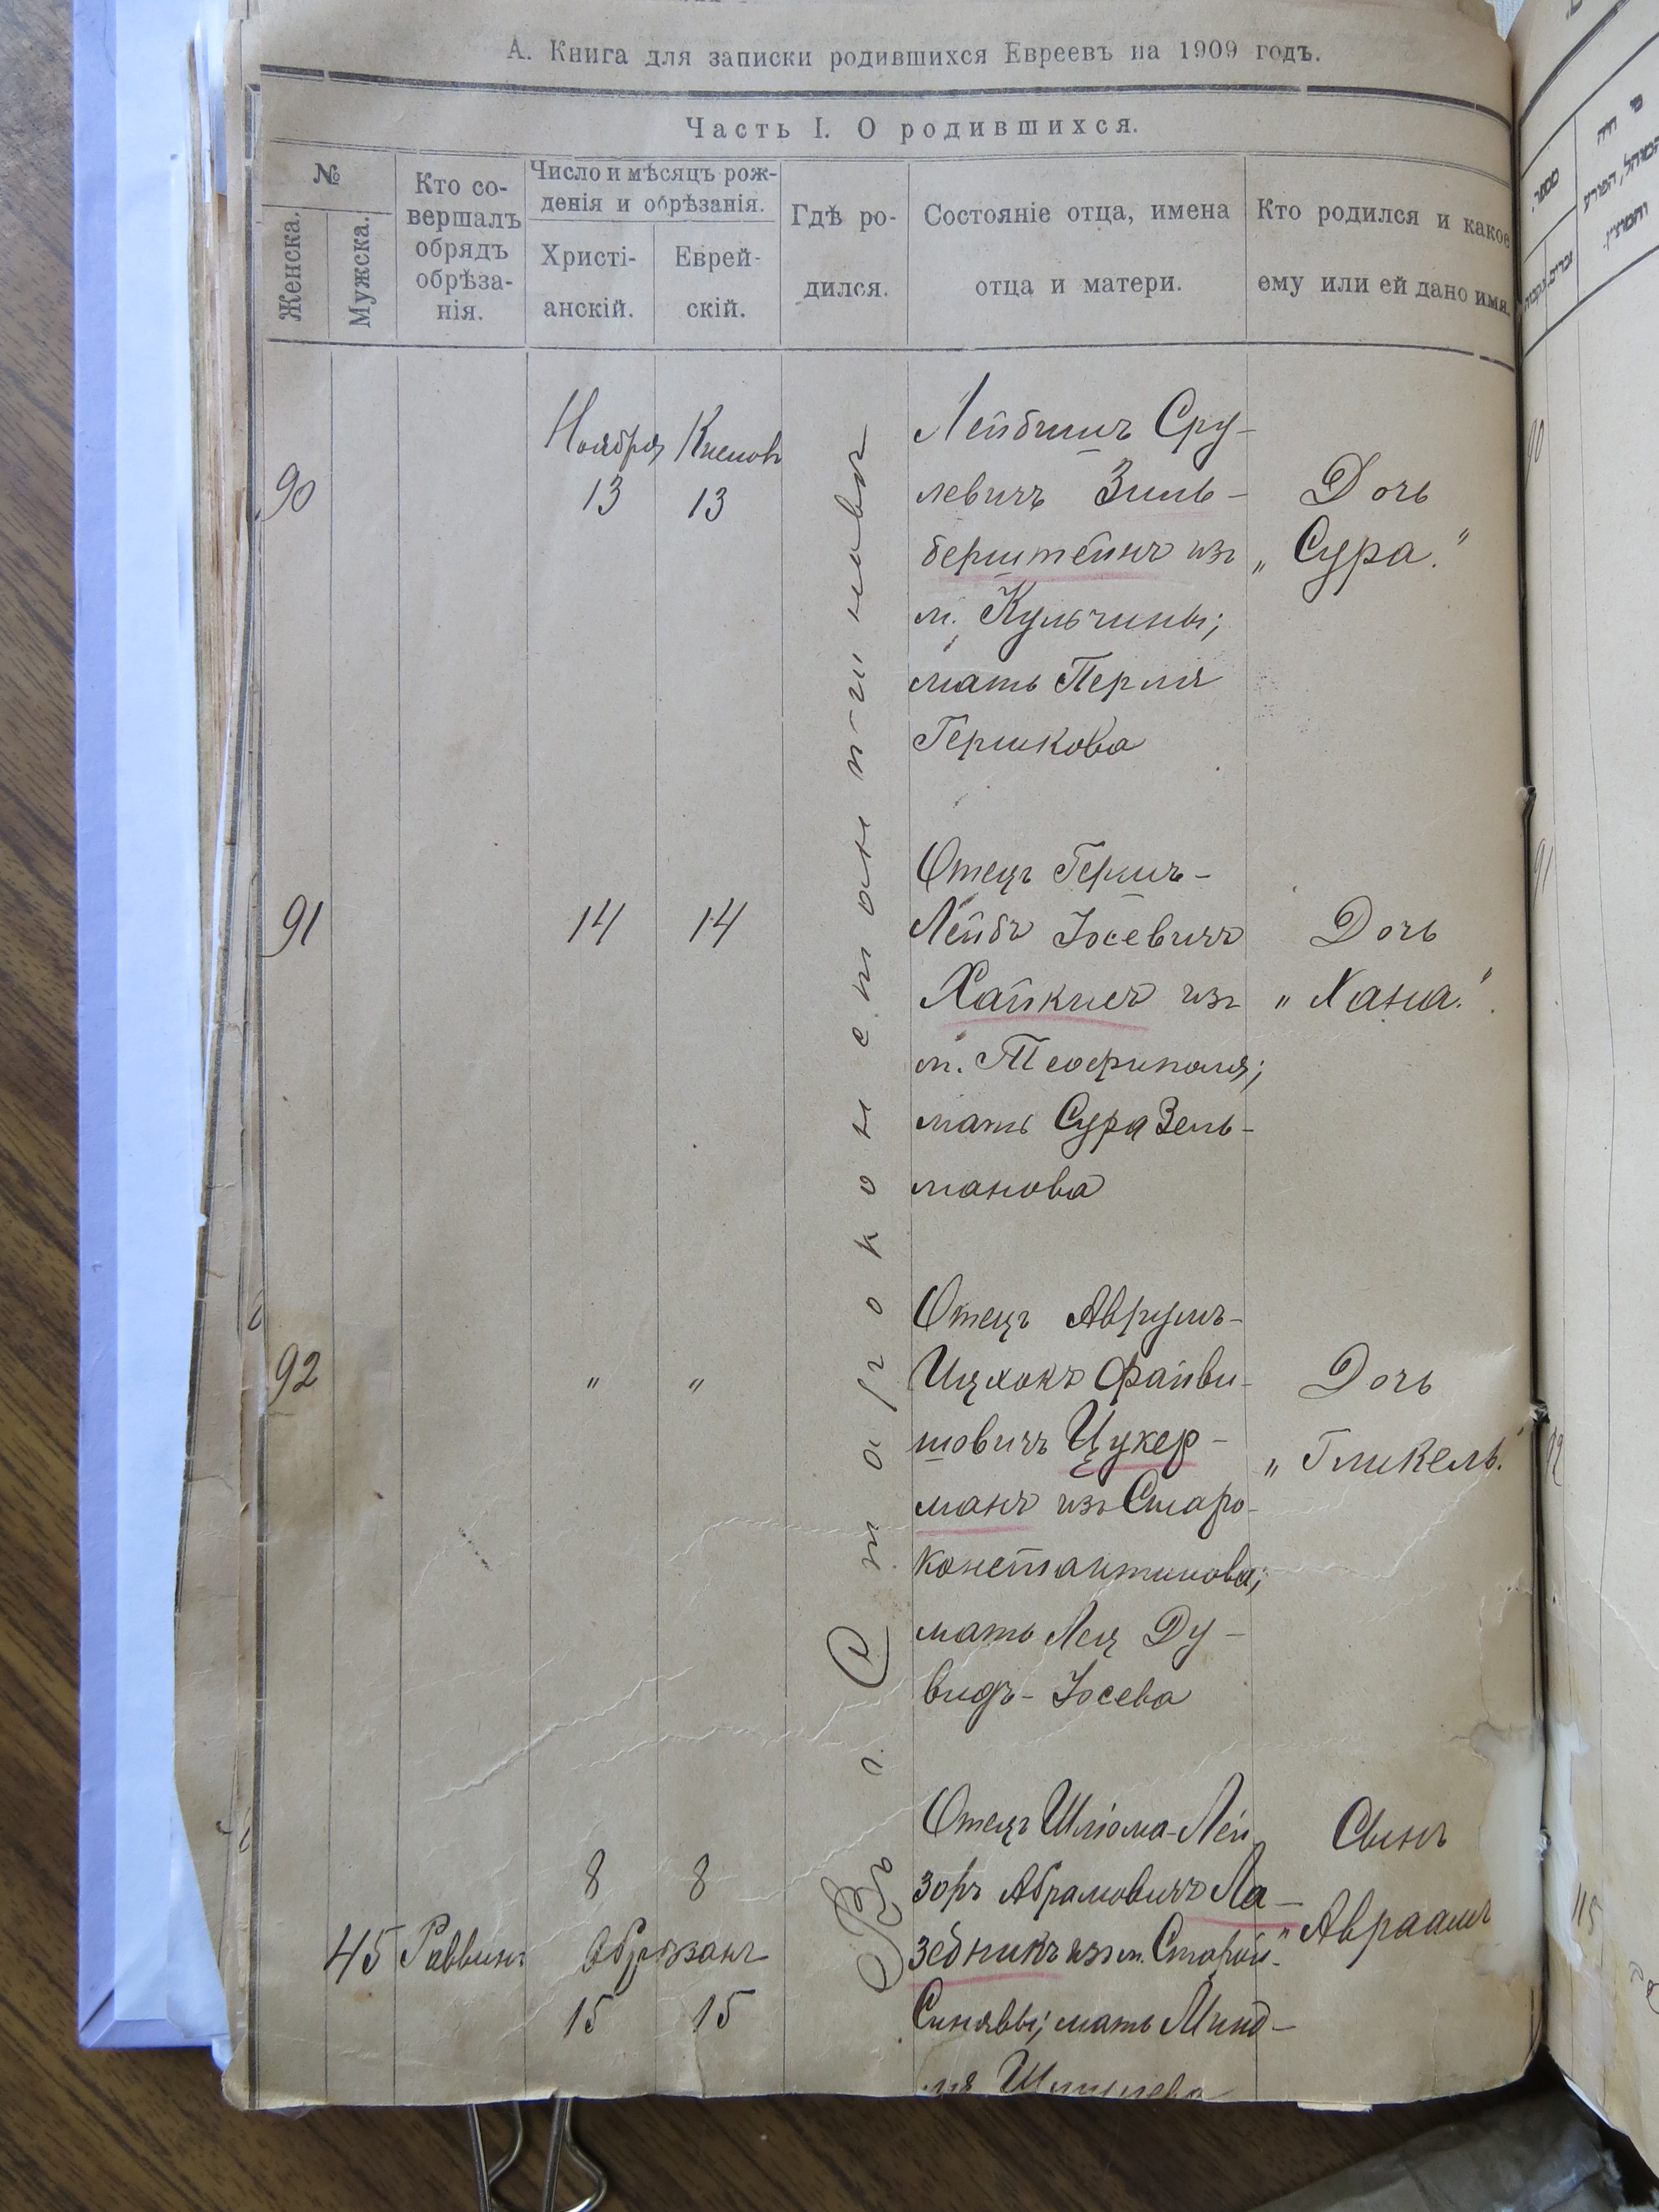 А. Книга для записки родившихся Евреевъ на 1909 годъ.
Часть I. О родившихся.
№
Женска.
Мужска.
Кто со-
вершалъ
обрядъ
обрѣза-
нія.
Число и мѣсяцъ рож-
денія и обрѣзанія.
Христі-
анскій.
Еврей-
скій.
Гдѣ ро-
дился.
Состояніе отца, имена
отца и матери.
Кто родился и какое
ему или ей дано имя.
Въ г. Староконстантиновѣ
90
Ноября
13
Кислова
13
Лейбишъ Сру-
левичъ Зиль-
берштейнъ изъ
м. Кульчины;
мать Перля
Гершкова
Дочь
„Сура."
91
14
14
Отецъ Гершъ-
Лейбъ Іосевичъ
Хайкисъ изъ
м. Теофиполя;
мать Сура Зель-
манова
Дочь
„Хана."
92
"
"
Отецъ Аврумъ-
Ицхокъ Файви-
шовичъ Цукер-
манъ изъ Старо-
константинова;
мать Лея Ду-
видъ-Іосева
Дочь
„Гликель."
45
Раввинъ
8
8
Обрѣзанъ
15
15
Отецъ Шліома-Лей
зоръ Абрамовичъ Ла-
зебникъ изъ м. Старой-
Синявы; мать Минд-
ля Шмулева
Сынъ
„Авраамъ